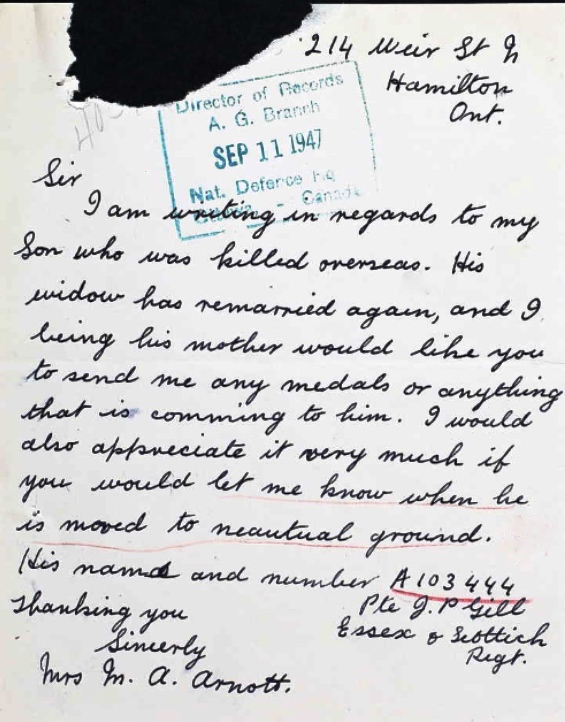 214 Weir St N
Hamilton
Ont.
Director of Records
A. G. Branch
SEP 11 1947
Nat. Defence Hq
Ottawa - Canada
Sir
I am writing in regards to my
Son who was killed overseas. His
widow has remarried again, and I
being his mother would like you
to send me any medals or anything
that is comming to him. I would
also appreciate it very much if
you would let me know when he
is moved to neautual ground.
His name and number A103444
Pte J. P Gill
Essex & Scottich
Regt.
Thanking you
Sincerly
Mrs M. A. Arnott.